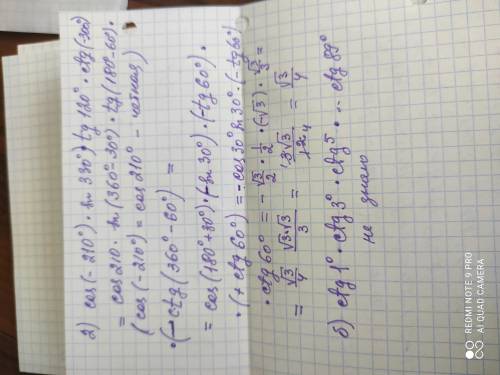 2) cos(-210°) · sin 330° · tg 120° · ctg(-300°)
= cos 210 · sin(360°-30°) · tg(180°-60) ·
(cos(-210°) = cos 210° - четная)
· (-ctg(360°-60°) =
= cos(180°+30°) · (-sin 30°) · (-tg 60°) ·
· (+ ctg 60°) = - cos 30° sin 30° · (-tg 60°)
· ctg 60° = - √3/2 · 1/2 · (-√3) · √3/3 =
= √3/4 · √3·√3/3 = 3√3/12 4 = √3/4
б) ctg 1° · ctg 3° · ctg 5 · ... ctg 89°
не знаю
REDMI NOTE 9 PRO
AI QUAD CAMERA